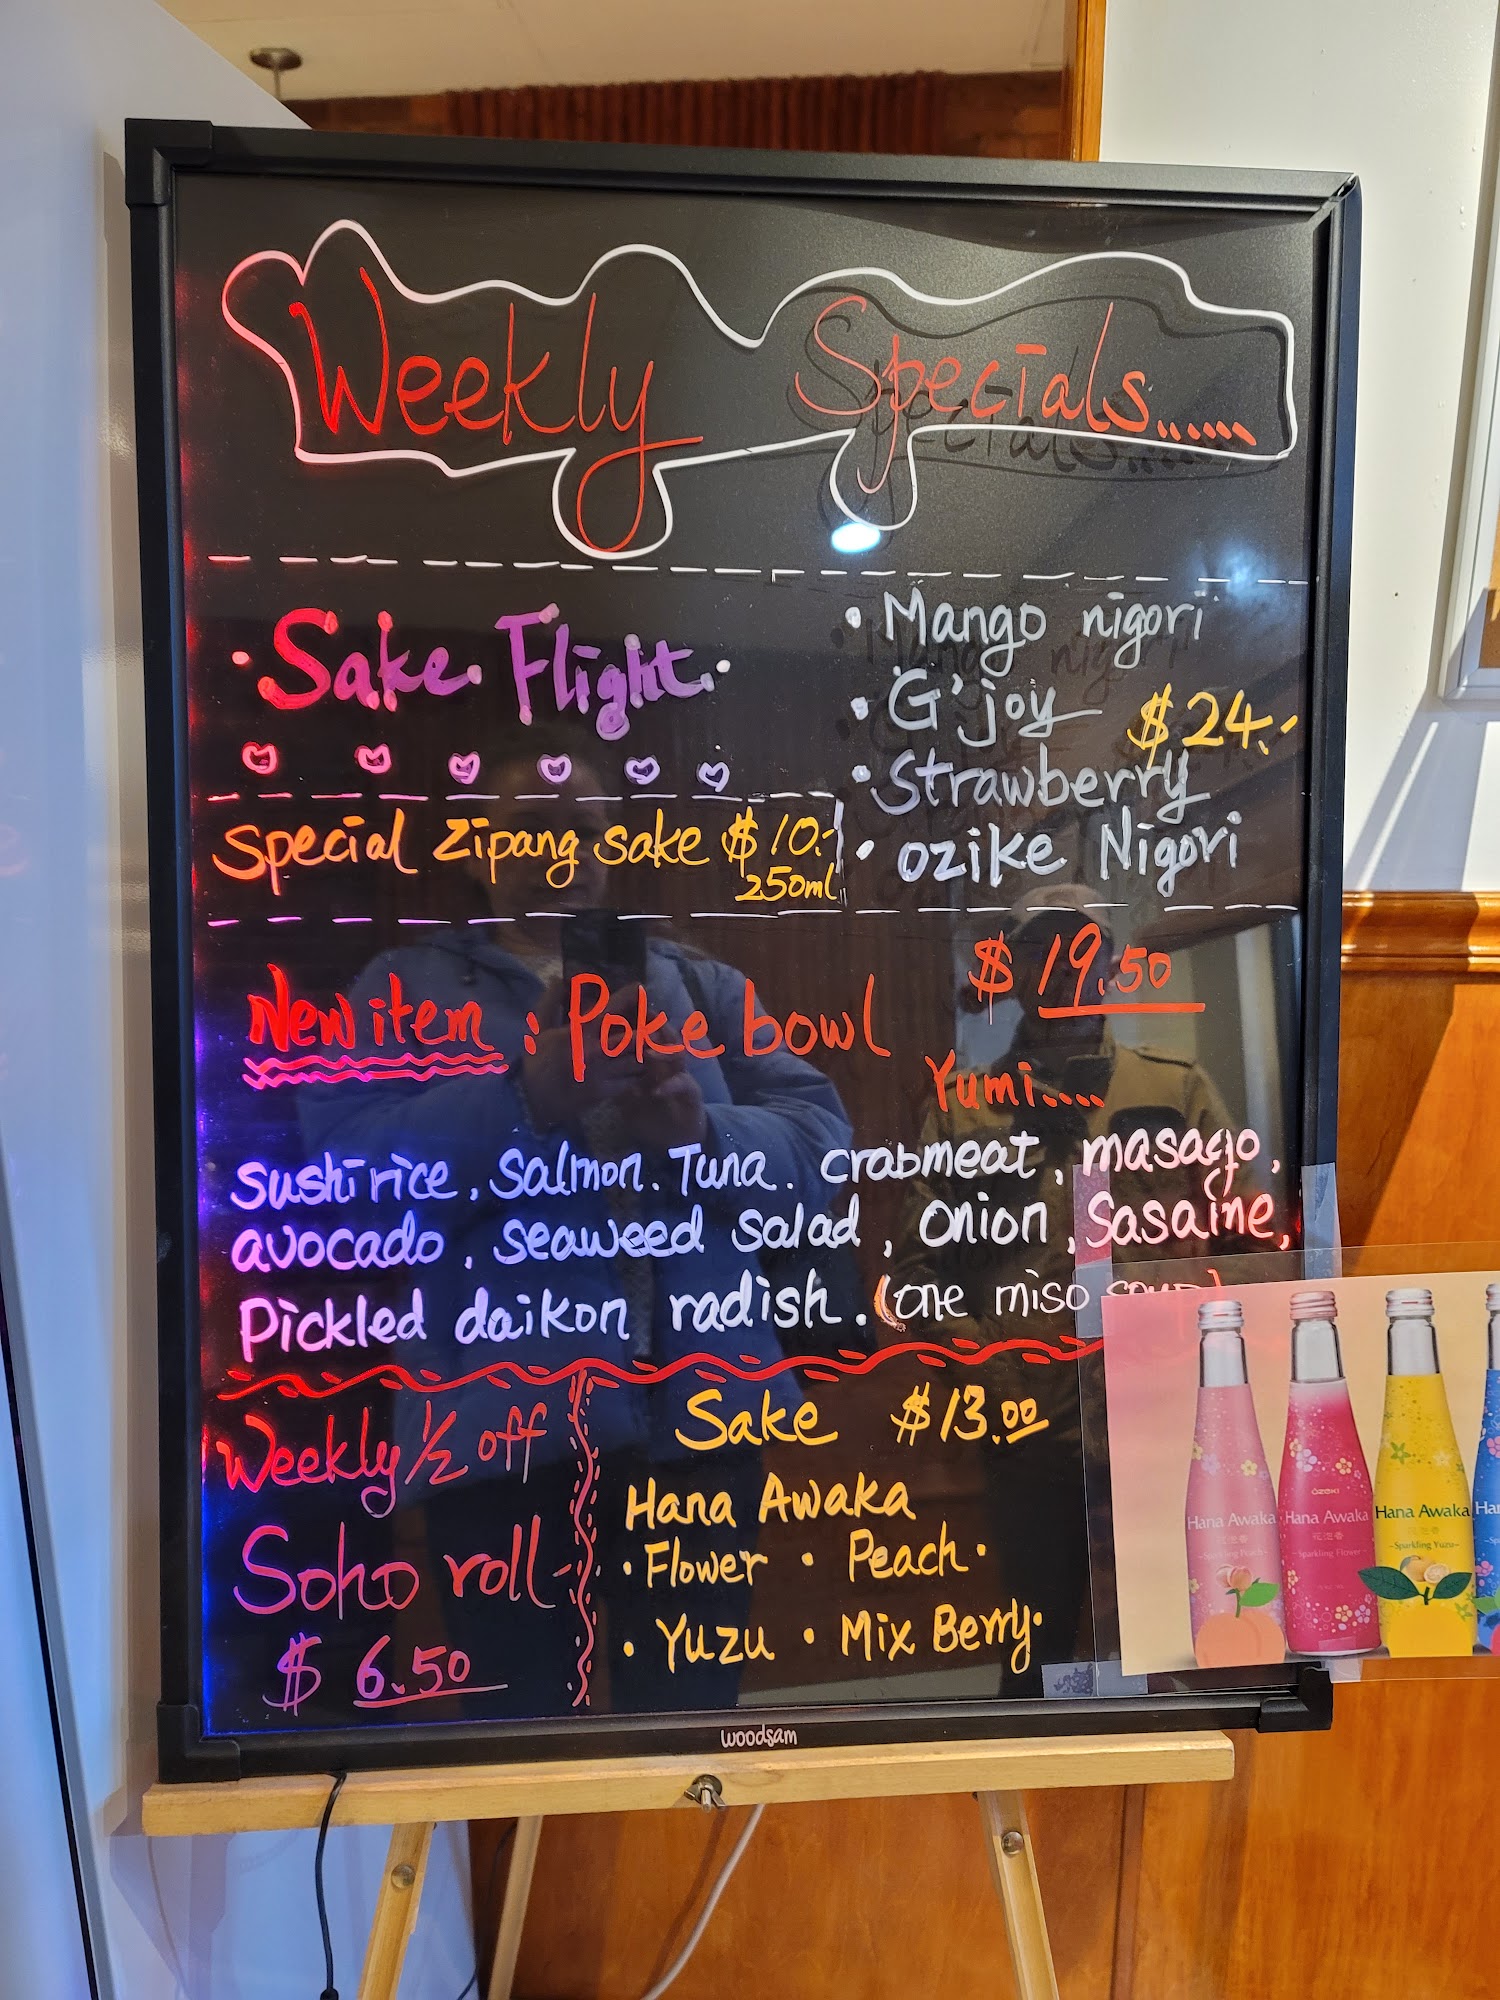 Weekly Specials......
· Sake Flight ·
· Mango nigori
· G'joy
· Strawberry
· ozike Nigori
$24.-
Special Zipang sake $10.-
250ml
New item : Poke bowl
$19.50
Yumi....
sushi rice, Salmon. Tuna. crabmeat, masago,
avocado, seaweed salad, onion, Sasaine,
Pickled daikon radish. (one miso soup)
Weekly ½ off
Soho roll
$6.50
Sake $13.00
Hana Awaka
· Flower · Peach ·
· Yuzu · Mix Berry ·
Hana Awaka
花泡香
~Sparkling Peach~
OZEKI
Hana Awaka
花泡香
~Sparkling Flower~
Hana Awaka
花泡香
~Sparkling Yuzu~
woodsam